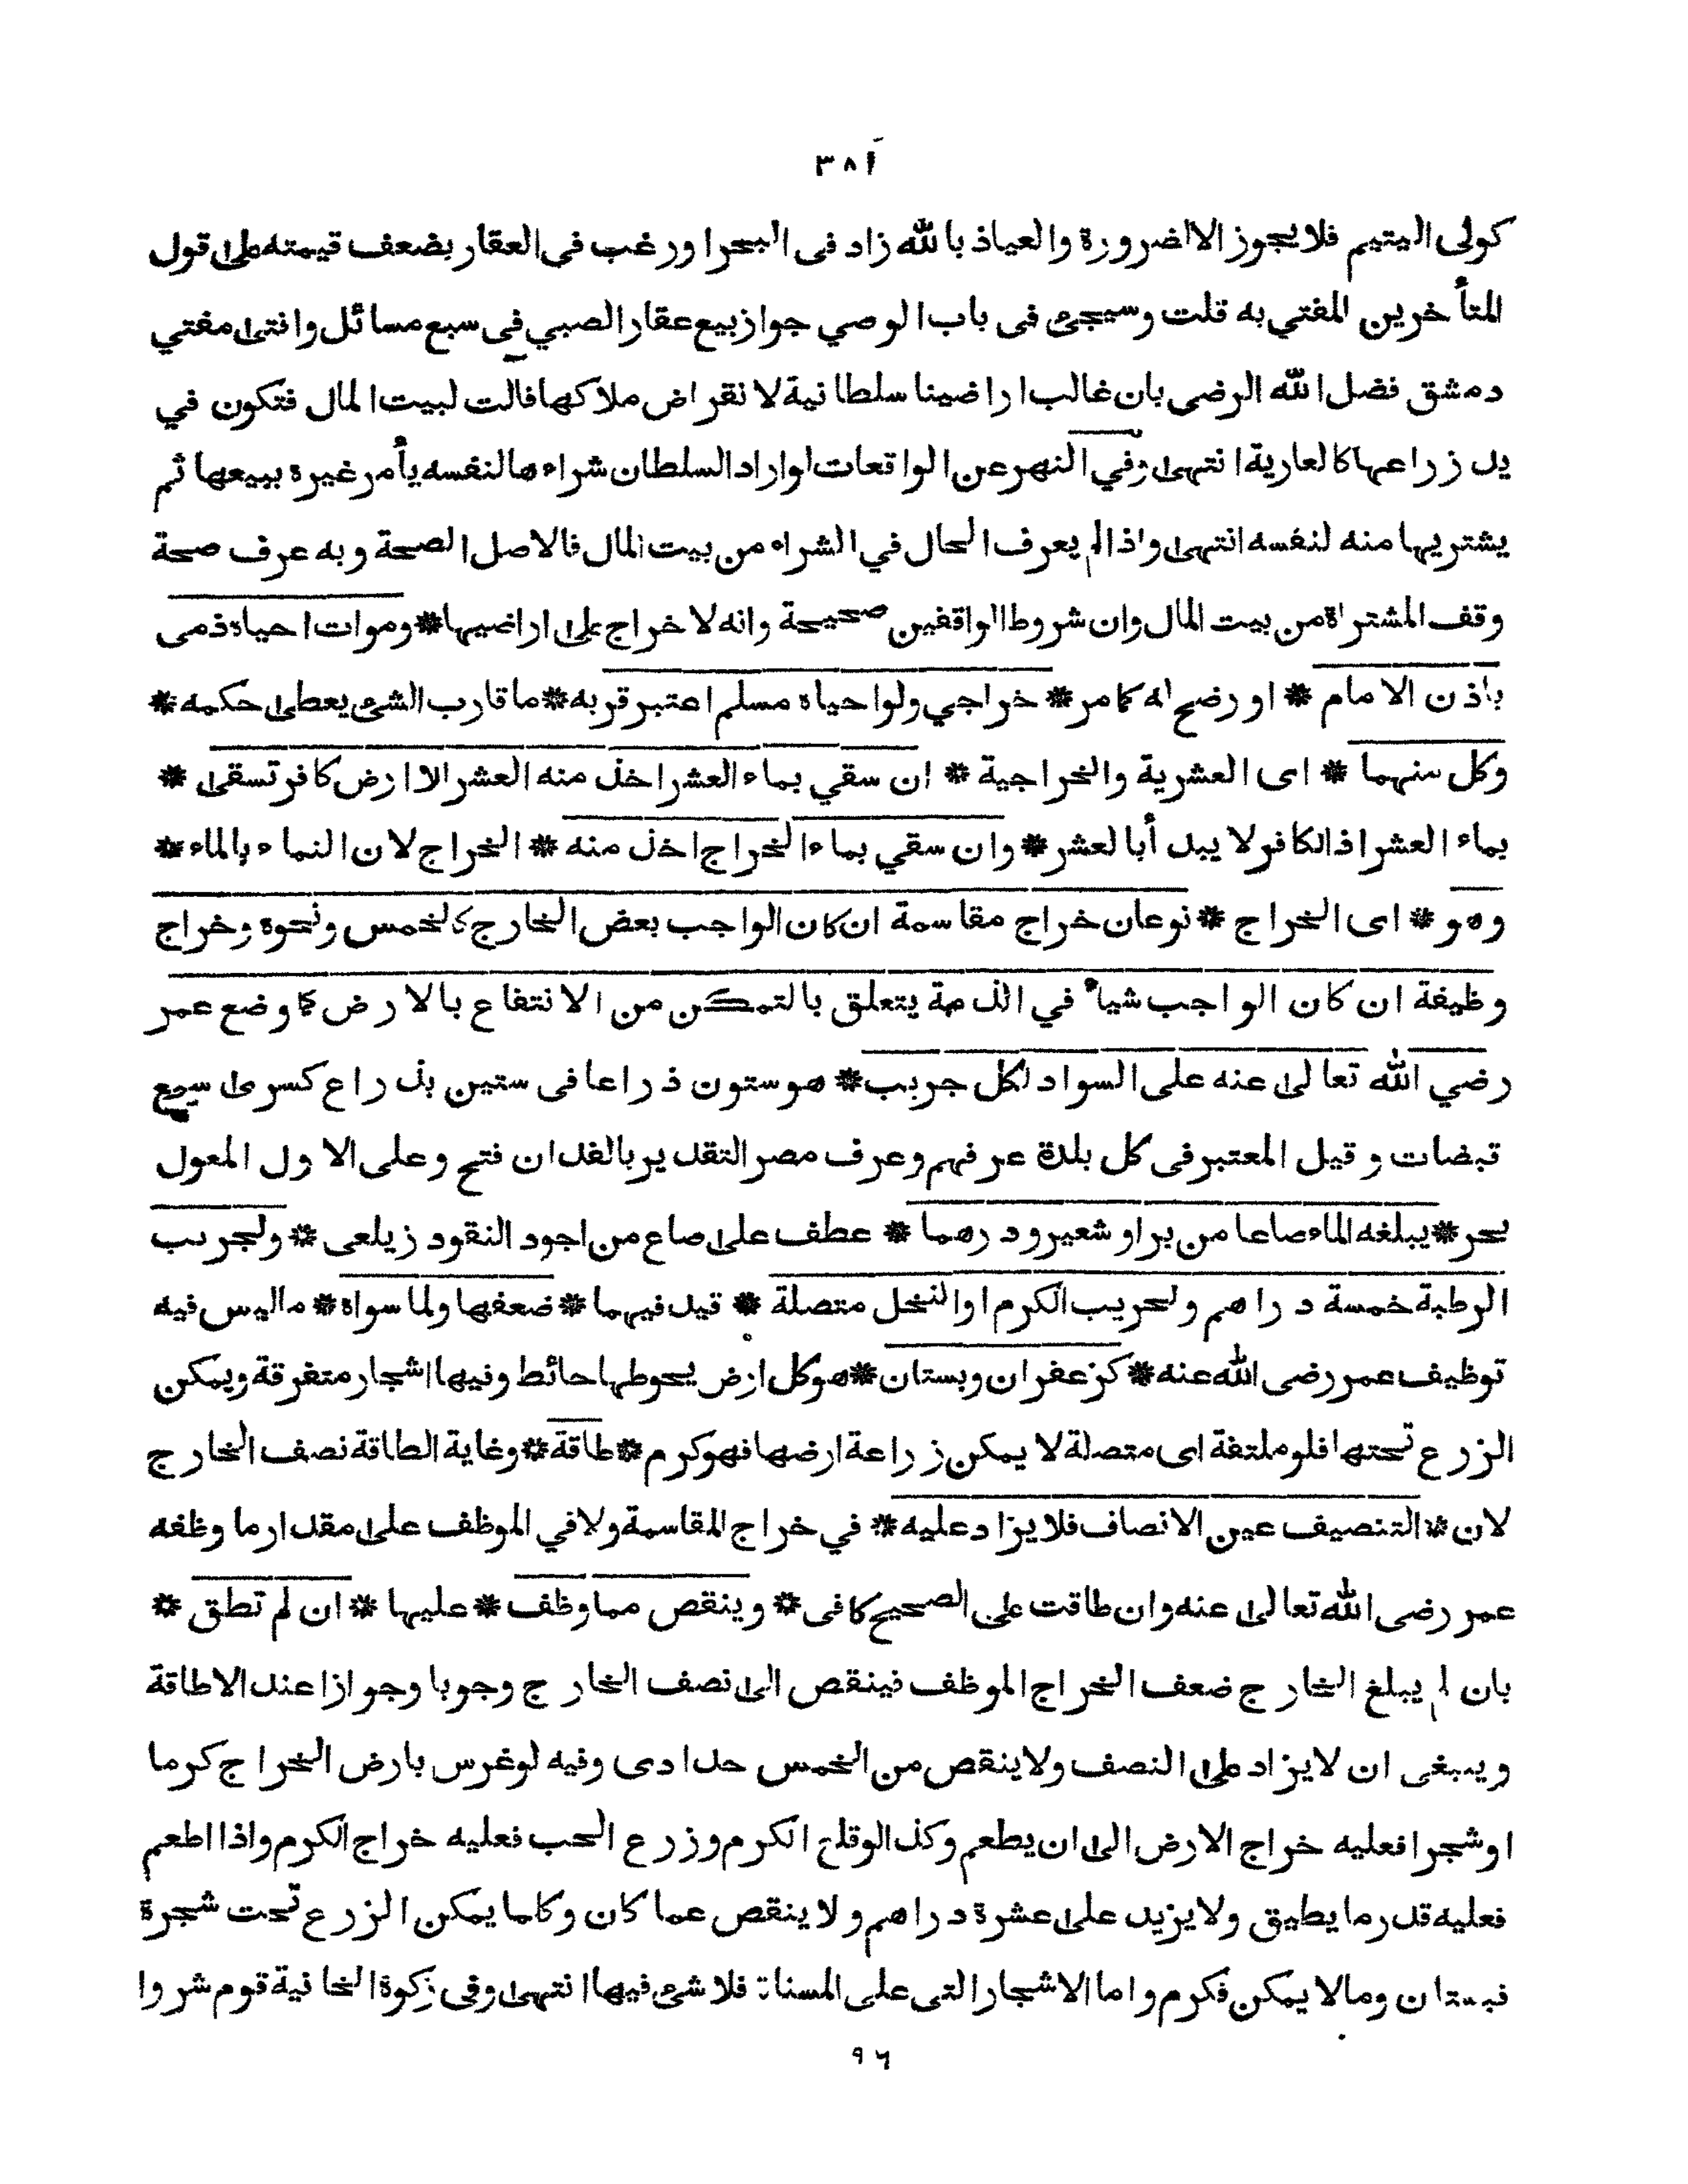 ٣٨١
كولى اليتيم فلا يجوز الالضرورة والعياذ بالله زاد فى البحر اورغب فى العقار بضعف قيمته على قول
المتأخرين المفتي به قلت وسيجئ فى باب الوصي جواز بيع عقار الصبي فى سبع مسائل وافتى مفتي
دمشق فضل الله الرضى بان غالب اراضينا سلطانية لانقراض ملاكها فآلت لبيت المال فتكون في
يد زراعها كالعارية انتهى وفي النهر عن الواقعات لواراد السلطان شراءها لنفسه يأمر غيره ببيعها ثم
يشتريها منه لنفسه انتهى واذا لم يعرف الحال في الشراء من بيت المال فالاصل الصحة وبه عرف صحة
وقف المشتراة من بيت المال وان شروط الواقفين صحيحة وانه لا خراج على اراضيها * وموات احياه ذمى
باذن الامام * او رضخ له كما مر * خراجي ولو احياه مسلم اعتبر قربه * ما قارب الشئ يعطى حكمه *
وكل منهما * اى العشرية والخراجية * ان سقي بماء العشر اخذ منه العشر الا ارض كافر تسقى *
بماء العشر اذ الكافر لا يبدأ بالعشر * وان سقي بماء الخراج اخذ منه * الخراج لان النماء بالماء *
وهو * اى الخراج * نوعان خراج مقاسمة ان كان الواجب بعض الخارج كالخمس ونحوه وخراج
وظيفة ان كان الواجب شيأ في الذمة يتعلق بالتمكن من الانتفاع بالارض كما وضع عمر
رضي الله تعالى عنه على السواد لكل جريب * هو ستون ذراعا فى ستين بذراع كسرى سبع
قبضات وقيل المعتبر فى كل بلدة عرفهم وعرف مصر التقدير بالفدان فتح وعلى الاول المعول
بحر * يبلغه الماء صاعا من بر او شعير ودرهما * عطف على صاع من اجود النقود زيلعى * ولجريب
الرطبة خمسة دراهم ولجريب الكرم او النخل متصلة * قيد فيهما * ضعفها ولما سواه * ما ليس فيه
توظيف عمر رضى الله عنه * كزعفران وبستان * هو كل ارض يحوطها حائط وفيها اشجار متفرقة ويمكن
الزرع تحتها فلو ملتفة اى متصلة لا يمكن زراعة ارضها فهو كرم * طاقة * وغاية الطاقة نصف الخارج
لان * التنصيف عين الانصاف فلا يزاد عليه * في خراج المقاسمة ولا في الموظف على مقدار ما وظفه
عمر رضى الله تعالى عنه وان طاقت على الصحيح كافى * وينقص مما وظف * عليها * ان لم تطق *
بان لم يبلغ الخارج ضعف الخراج الموظف فينقص الى نصف الخارج وجوبا وجوازا عند الاطاقة
وينبغى ان لا يزاد على النصف ولا ينقص من الخمس حدادى وفيه لوغرس بارض الخراج كرما
اوشجرا فعليه خراج الارض الى ان يطعم وكذا لوقلع الكرم وزرع الحب فعليه خراج الكرم واذا اطعم
فعليه قدر ما يطيق ولا يزيد على عشرة دراهم ولا ينقص عما كان وكلما يمكن الزرع تحت شجرة
فبستان ومالا يمكن فكرم واما الاشجار التى على المسناة فلا شئ فيها انتهى وفى زكوة الخانية قوم شروا
٩٦